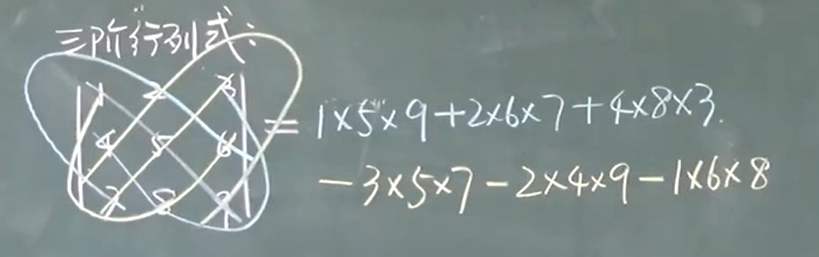 三阶行列式:
| 1 2 3 |
| 4 5 6 | = 1×5×9+2×6×7+4×8×3
| 7 8 9 | -3×5×7-2×4×9-1×6×8